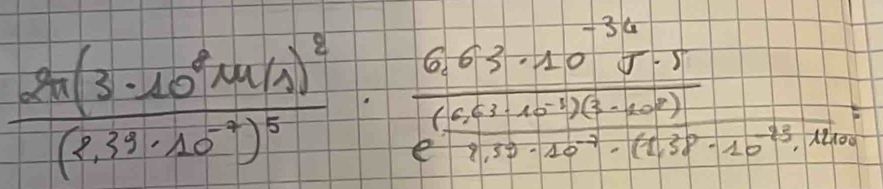 2π(3·10⁸ m/s)² / (2,39·10⁻⁷)⁵ · 6,63·10⁻³⁴ J·s / e^((6,63·10⁻³)(3·10⁸) / 2,39·10⁻⁷·(1,38·10⁻²³·12100 =